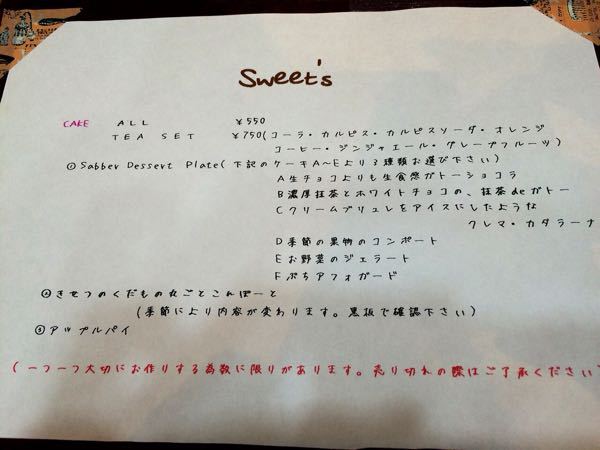 Sweet's
CAKE ALL ¥550
TEA SET ¥750(コーラ・カルピス・カルピスソーダ・オレンジ
コーヒー・ジンジャエール・グレープフルーツ)
①Sabber Dessert Plate(下記のケーキA~Eより3種類お選び下さい)
A生チョコよりも生食感ガトーショコラ
B濃厚抹茶とホワイトチョコの、抹茶deガトー
Cクリームブリュレをアイスにしたような
クレマ・カタラーナ
D季節の果物のコンポート
Eお野菜のジェラート
Fぷちアフォガード
②きせつのくだもの丸ごとこんぽーと
(季節により内容が変わります。黒板で確認下さい)
③アップルパイ
(一つ一つ大切にお作りする為数に限りがあります。売り切れの際はご了承ください)